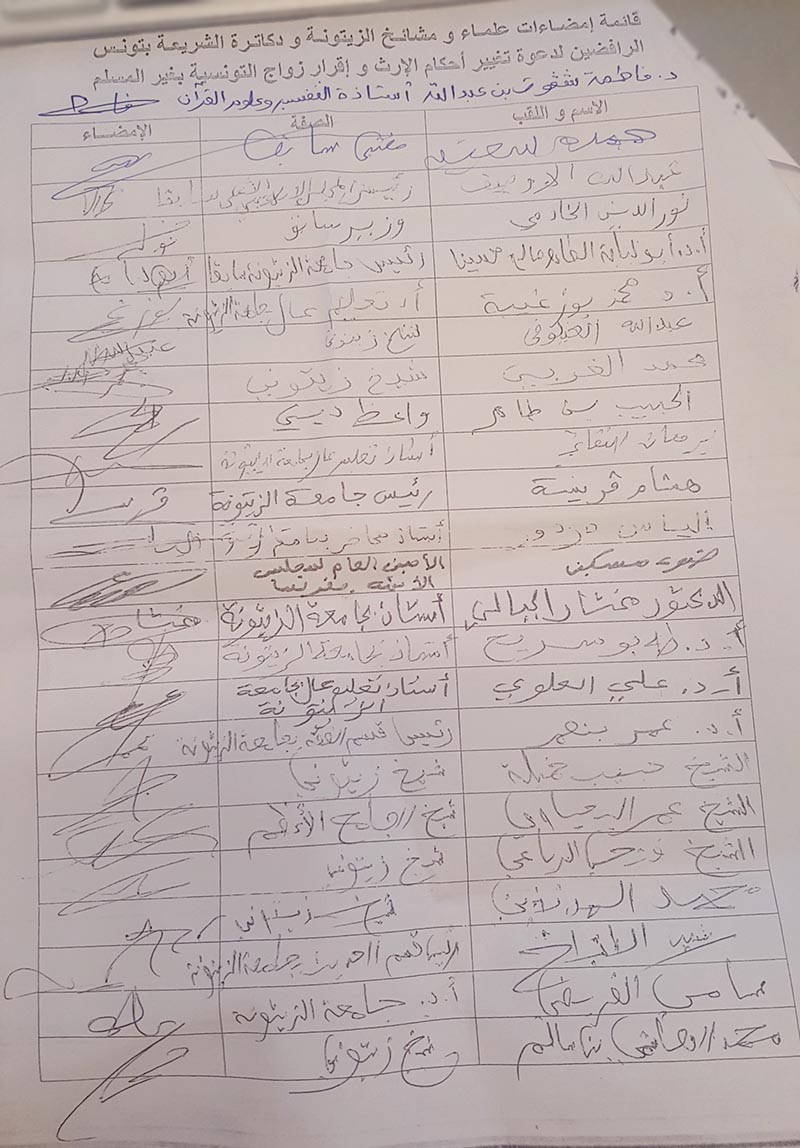 قائمة إمضاءات علماء و مشائخ الزيتونة و دكاترة الشريعة بتونس
الرافضين لدعوة تغيير أحكام الإرث و إقرار زواج التونسية بغير المسلم
د. فاطمة شقوت بن عبد الله أستاذة التفسير وعلوم القرآن
الاسم و اللقب الصفة الإمضاء
حمدة سعيد مفتي سابق
عبد الله الاوصيف رئيس المجلس الإسلامي الأعلى سابقا
نور الدين الخادمي وزير سابق
أ.د. أبو لبابة الطاهر صالح حسين رئيس جامعة الزيتونة سابقا
أ. د محمد بوزغيبة أ. تعليم عال جامعة الزيتونة
عبد الله شيخ زيتوني
محمد الغربي شيخ زيتوني
الحبيب بن طاهر واعظ ديني
برهان النفاتي أستاذ تعليم عال جامعة الزيتونة
هشام قريسة رئيس جامعة الزيتونة
إلياس دردور أستاذ محاضر
ضوء مسكين الأمين العام لمجلس
الأئمة بفرنسا
الدكتور منشار الجبالي أستاذ بجامعة الزيتونة
أ. د. طه بوسريح أستاذ بجامعة الزيتونة
أ.د. علي العلوي أستاذ تعليم عال بجامعة
الزيتونة
أ.د. عمر بنعمر رئيس قسم بجامعة الزيتونة
الشيخ حبيب شيخ زيتوني
الشيخ عمر اليحياوي شيخ الجامع الأعظم
الشيخ الرباعي شيخ زيتوني
محمد شيخ زيتوني
منير الطبراخ جامعة الزيتونة
سامي الفريضي أ.د. جامعة الزيتونة
محمد الهاشمي بن سالم شيخ زيتوني